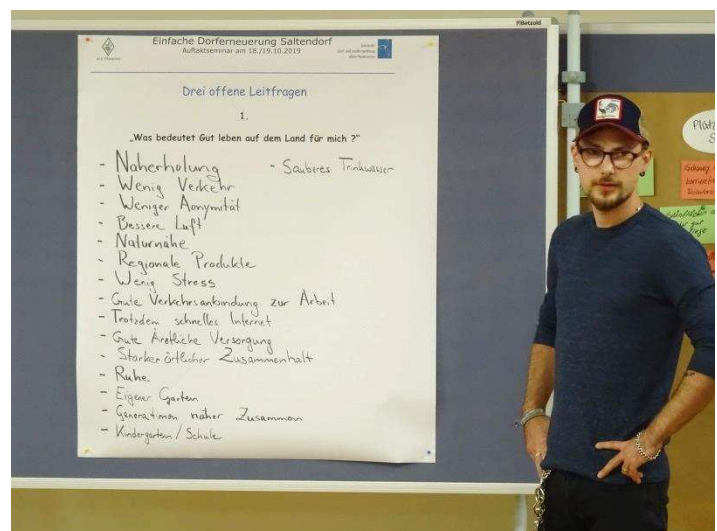 Betzold
Einfache Dorferneuerung Saltendorf
Auftaktseminar am 18./19.10.2019
Drei offene Leitfragen
1.
„Was bedeutet Gut leben auf dem Land für mich ?"
- Naherholung - Sauberes Trinkwasser
- Wenig Verkehr
- Weniger Aonymität
- Bessere Luft
- Naturnähe
- Regionale Produkte
- Wenig Stress
- Gute Verkehrsanbindung zur Arbeit
- Trotzdem schnelles Internet
- Gute Ärztliche Versorgung
- Starker örtlicher Zusammenhalt
- Ruhe
- Eigener Garten
- Generationen näher Zusammen
- Kindergarten / Schule